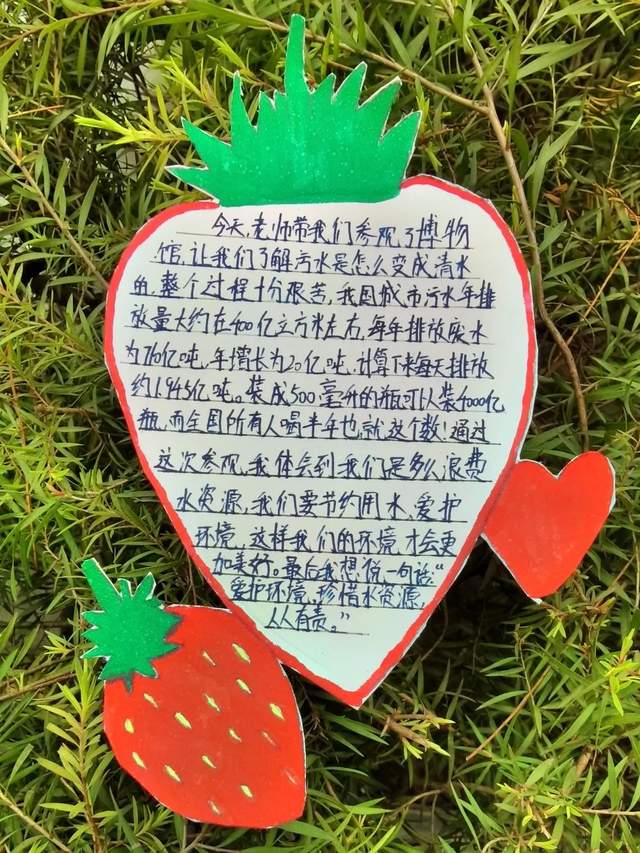 今天,老师带我们参观了博物
馆,让我们了解污水是怎么变成清水
的,整个过程十分艰苦,我国城市污水年排
放量大约在400亿立方米左右,每年排放废水
为710亿吨,年增长为20亿吨,计算下来每天排放
约1.945亿吨。装成500毫升的瓶可以装4000亿
瓶,而全国所有人喝半年也就这个数!通过
这次参观,我体会到我们是多么浪费
水资源,我们要节约用水,爱护
环境,这样我们的环境才会更
加美好。最后我想说一句话:“
爱护环境,珍惜水资源,
人人有责。”